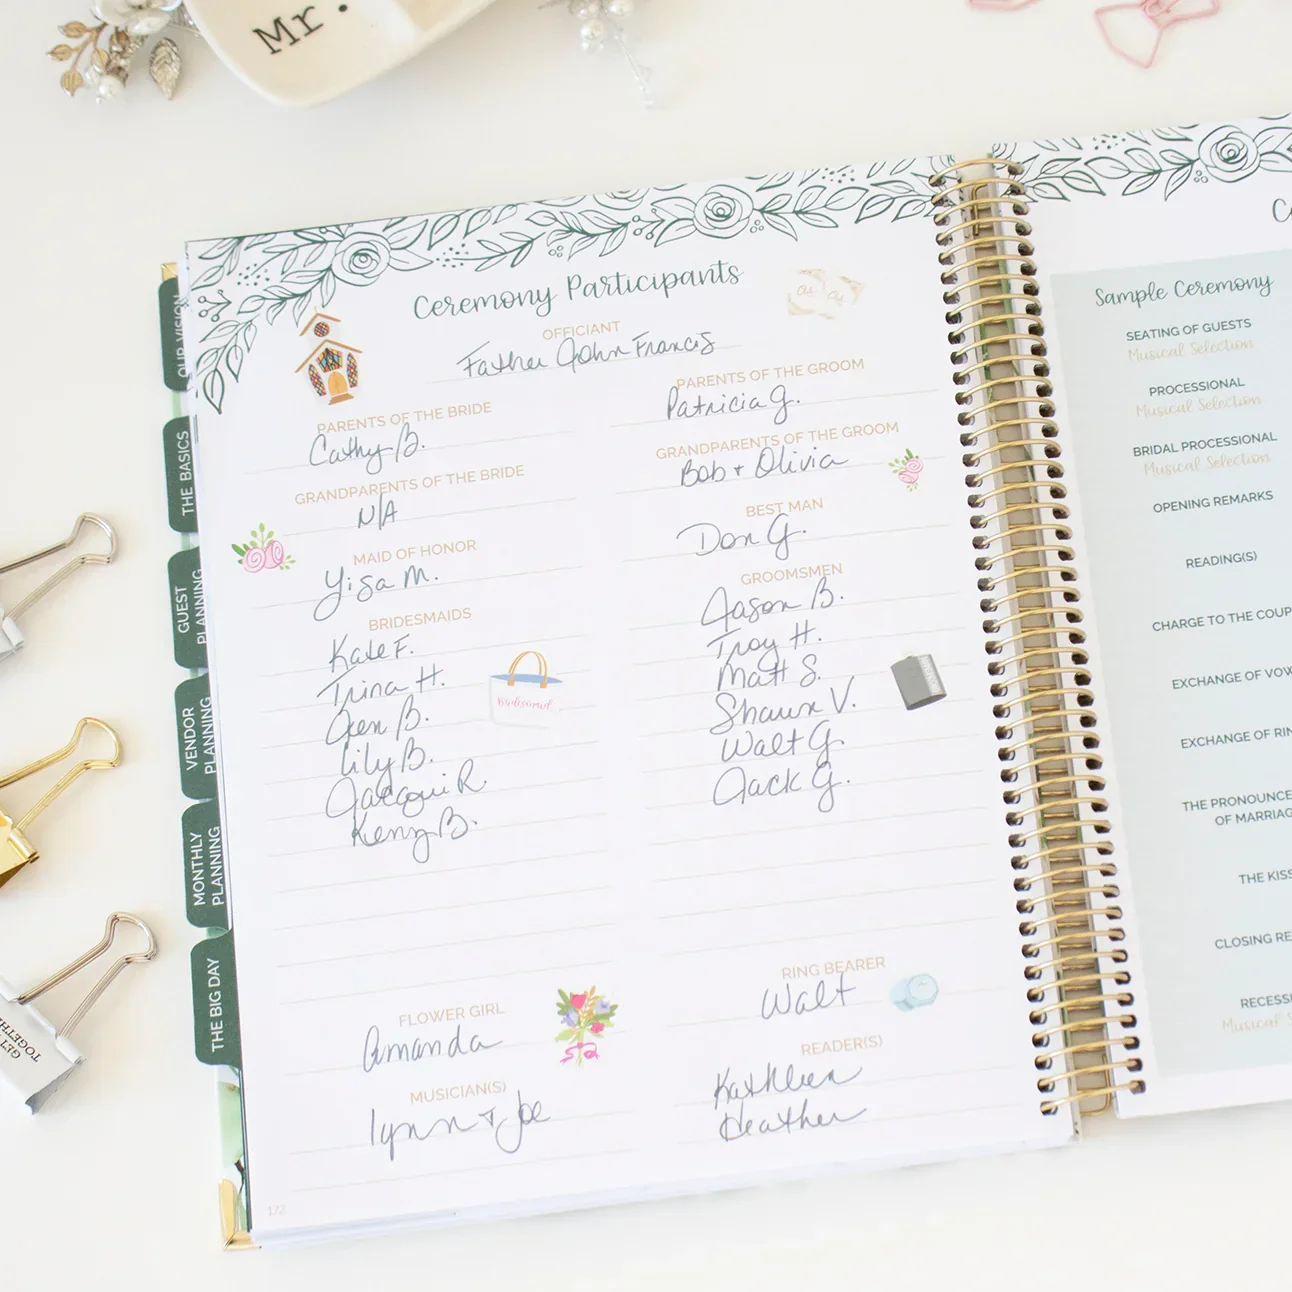 Mr.
Ceremony Participants
OFFICIANT
Father John Francis
PARENTS OF THE BRIDE
Cathy B.
GRANDPARENTS OF THE BRIDE
N/A
MAID OF HONOR
Yisa M.
BRIDESMAIDS
Kate F.
Trina H.
Jen B.
Lily B.
Jacqui R.
Kenzy B.
Bridesmaid
FLOWER GIRL
Amanda
MUSICIAN(S)
Lynn + Joe
172
PARENTS OF THE GROOM
Patricia G.
GRANDPARENTS OF THE GROOM
Bob + Olivia
BEST MAN
Don G.
GROOMSMEN
Jason B.
Troy H.
Matt S.
Shaun V.
Walt G.
Jack G.
RING BEARER
Walt
READER(S)
Kathleen
Heather
OUR VISION
THE BASICS
GUEST
PLANNING
VENDOR
PLANNING
MONTHLY
PLANNING
THE BIG DAY
GET
TOGETHE
Sample Ceremony
SEATING OF GUESTS
Musical Selection
PROCESSIONAL
Musical Selection
BRIDAL PROCESSIONAL
Musical Selection
OPENING REMARKS
READING(S)
CHARGE TO THE COUP
EXCHANGE OF VOW
EXCHANGE OF RIN
THE PRONOUNCE
OF MARRIAG
THE KISS
CLOSING RE
RECESS
Musical S